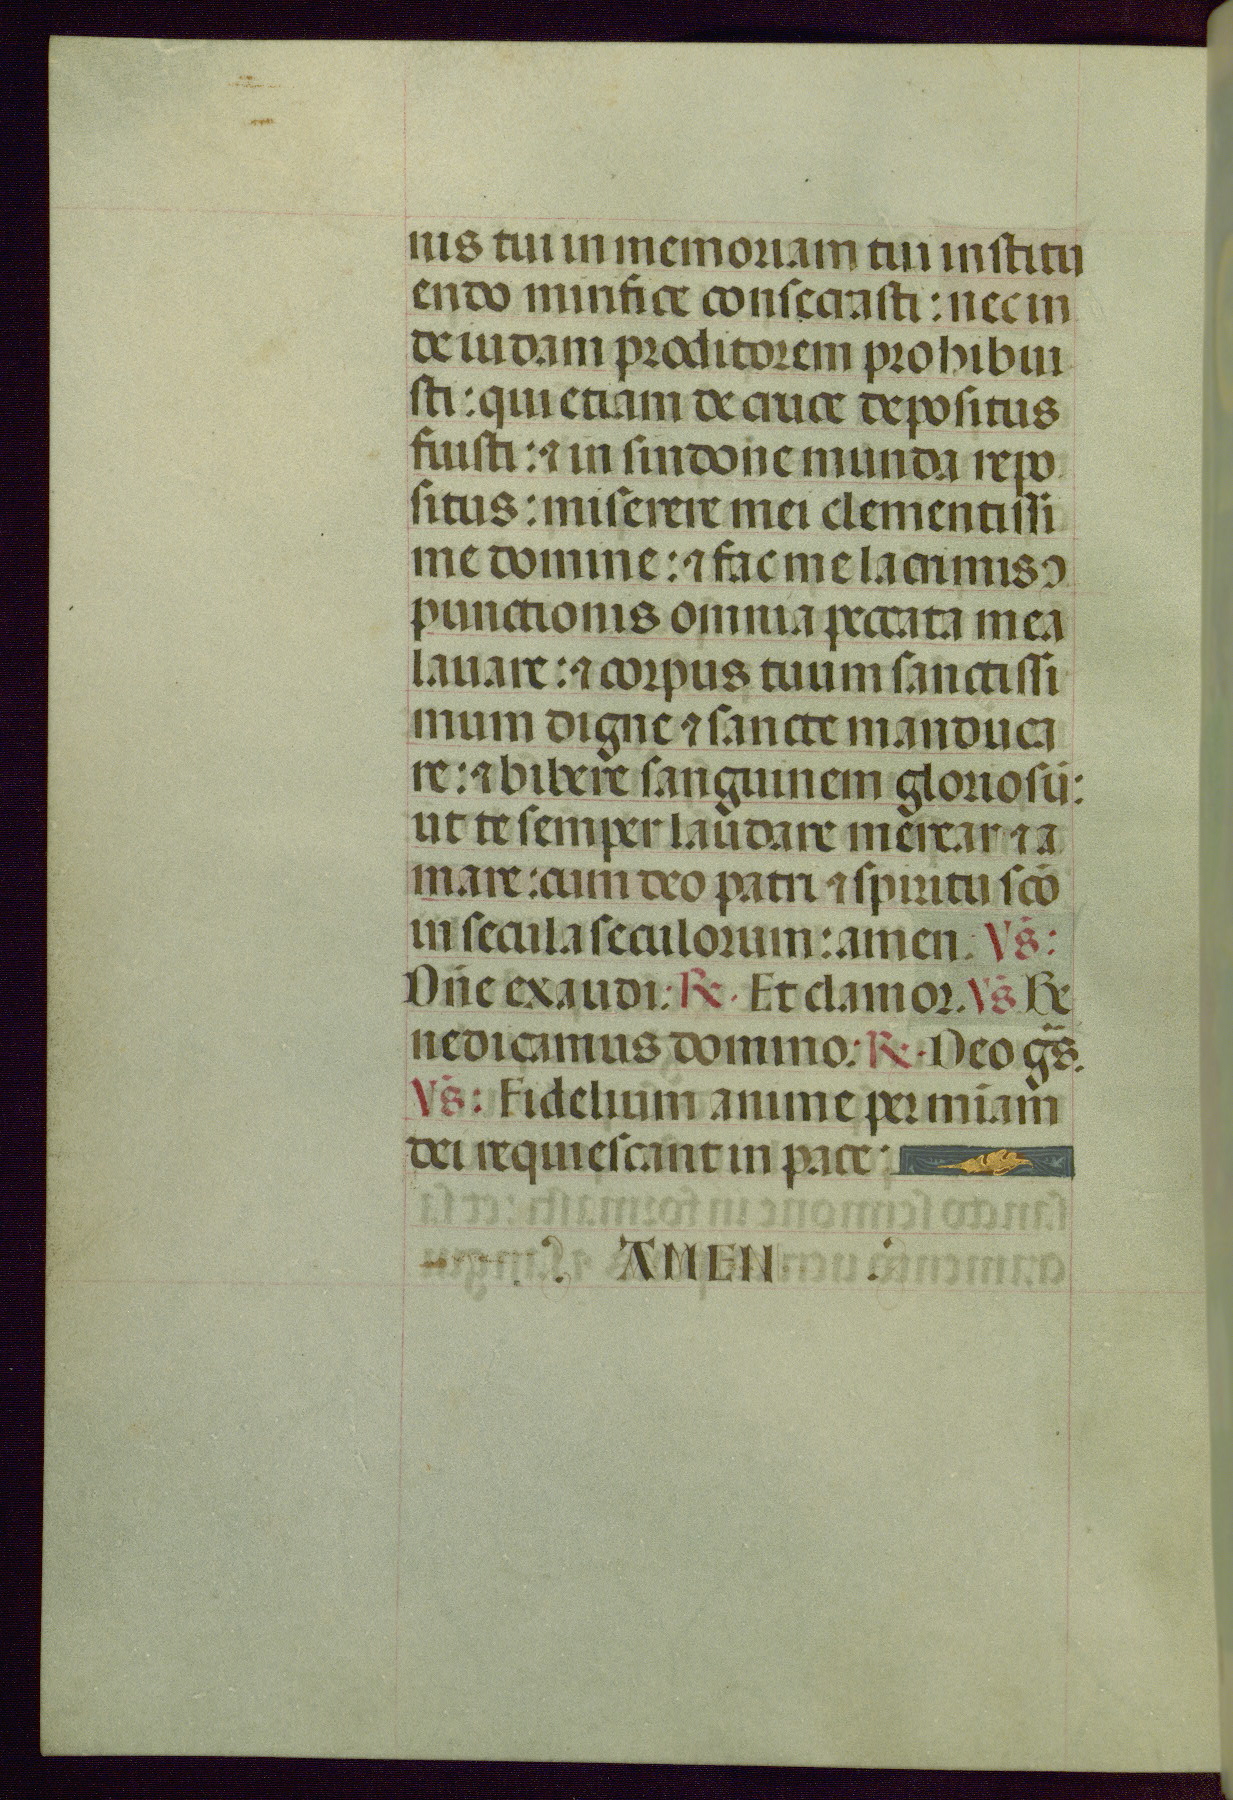 nis tui in memoriam tui institu
endo mirifice consecrasti : nec in
de iudam proditorem prohibui
sti : qui etiam de cruce depositus
fuisti : ⁊ in sindone munda repo
situs : miserere mei clementissi
me domine : ⁊ fac me lacrimis ↄ
punctionis omnia peccata mea
lavare : ⁊ corpus tuum sanctissi
mum digne ⁊ sancte manduca
re : ⁊ bibere sanguinem gloriosū :
ut te semper laudare merear ⁊ a
mare : cum deo patri ⁊ spiritu scō
in secula seculorum : amen. Vs̄ :
Dn̄e exaudi : ℞. Et clamor. Vs̄ Be
nedicamus domino : ℞. Deo gr̄s.
Vs̄ : Fidelium anime per mīam
dei requiescant in pace :
AMEN